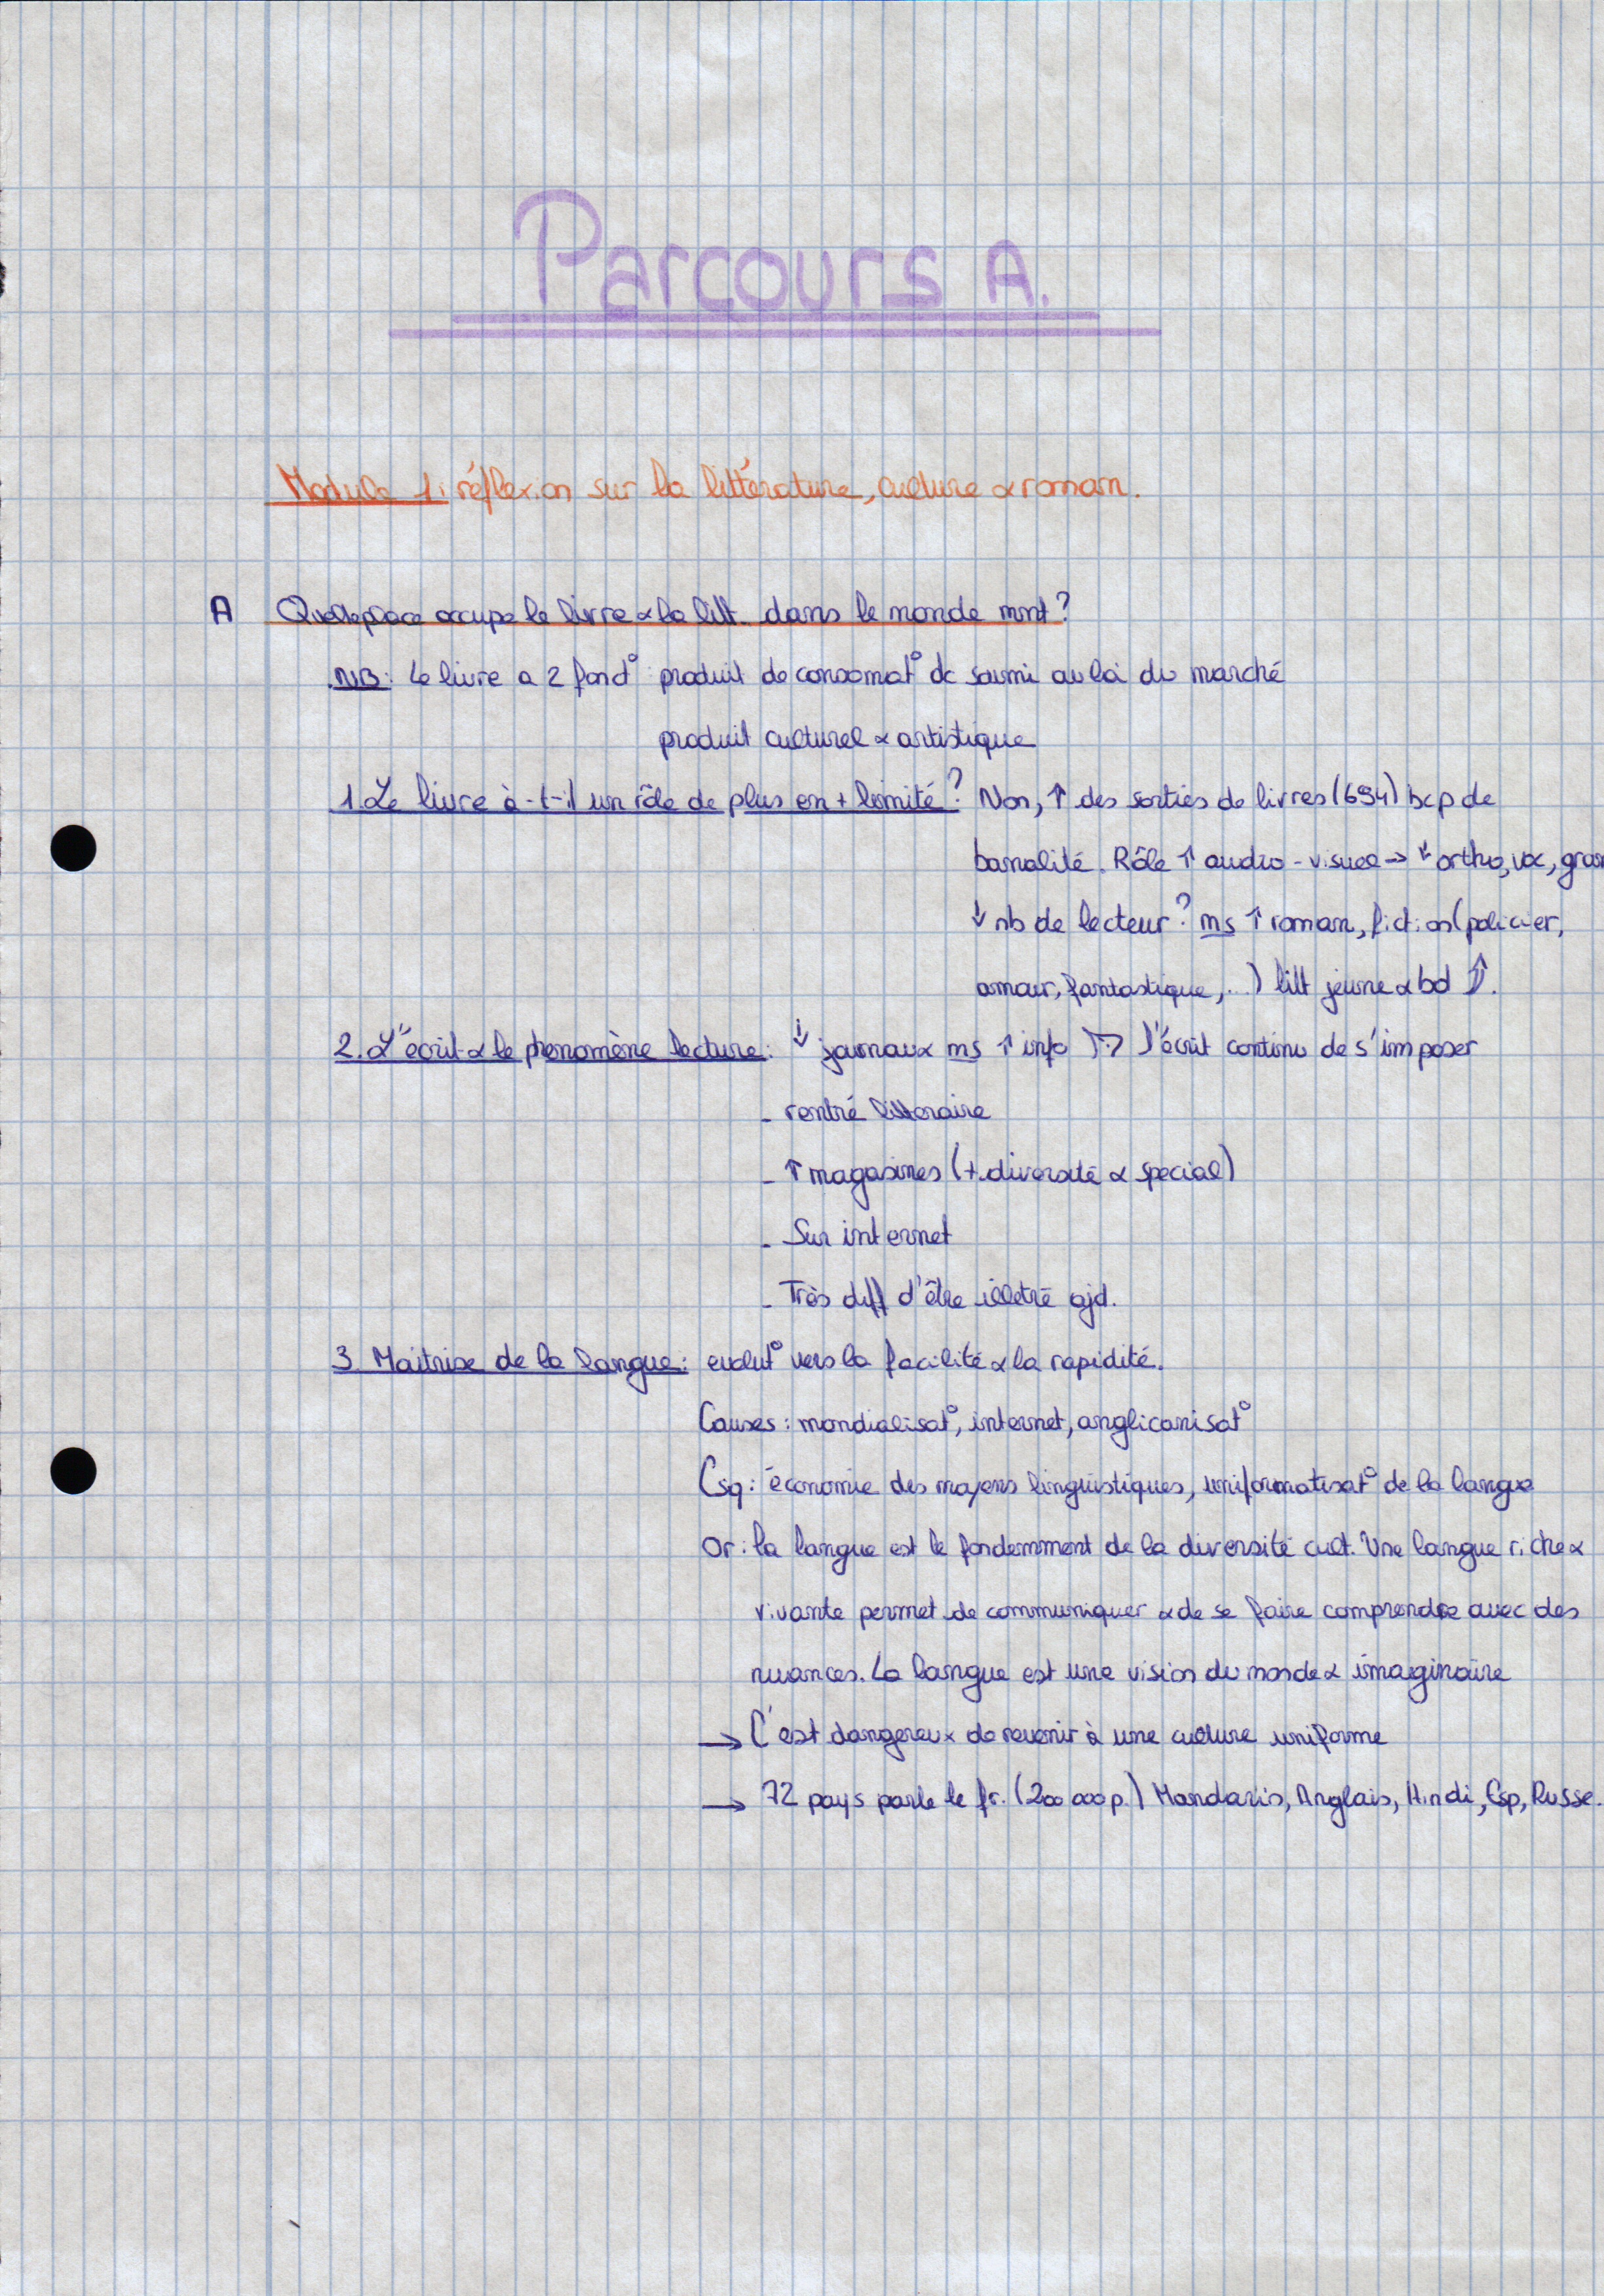 Parcours A.
Module 1: réflexion sur la littérature, culture & roman.
A Quelle place occupe le livre & la litt. dans le monde mnt?
NB: Le livre a 2 fonct° produit de consomat° dc soumi au loi du marché
produit culturel & artistique
1. Le livre à-t-il un rôle de plus en + limité? Non, ↑ des sorties de livres (694) bcp de
banalité. Rôle ↑ audio-visuel → ↓ ortho, voc, gram
↓ nb de lecteur? ms ↑ roman, fiction (policier,
amour, fantastique, ...) litt jeune & bd ⇑.
2. L'écrit & le phénomène lecture: ↓ journaux ms ↑ info → l'écrit continu de s'imposer
- rentré litteraire
- ↑ magasines (+ diversité & special)
- Sur internet
- Très diff d'être illetré ajd.
3. Maitrise de la langue: evolut° vers la facilité & la rapidité.
Causes: mondialisat°, internet, anglicanisat°
Csq: économie des moyens linguistiques, uniformatisat° de la langue
Or: la langue est le fondemment de la diversité cult. Une langue riche &
vivante permet de communiquer & de se faire comprendre avec des
nuances. La langue est une vision du monde & imaginaire
→ C'est dangereux de revenir à une culture uniforme
→ 72 pays parle le fr. (200 000 p.) Mandarin, Anglais, Hindi, Esp, Russe.